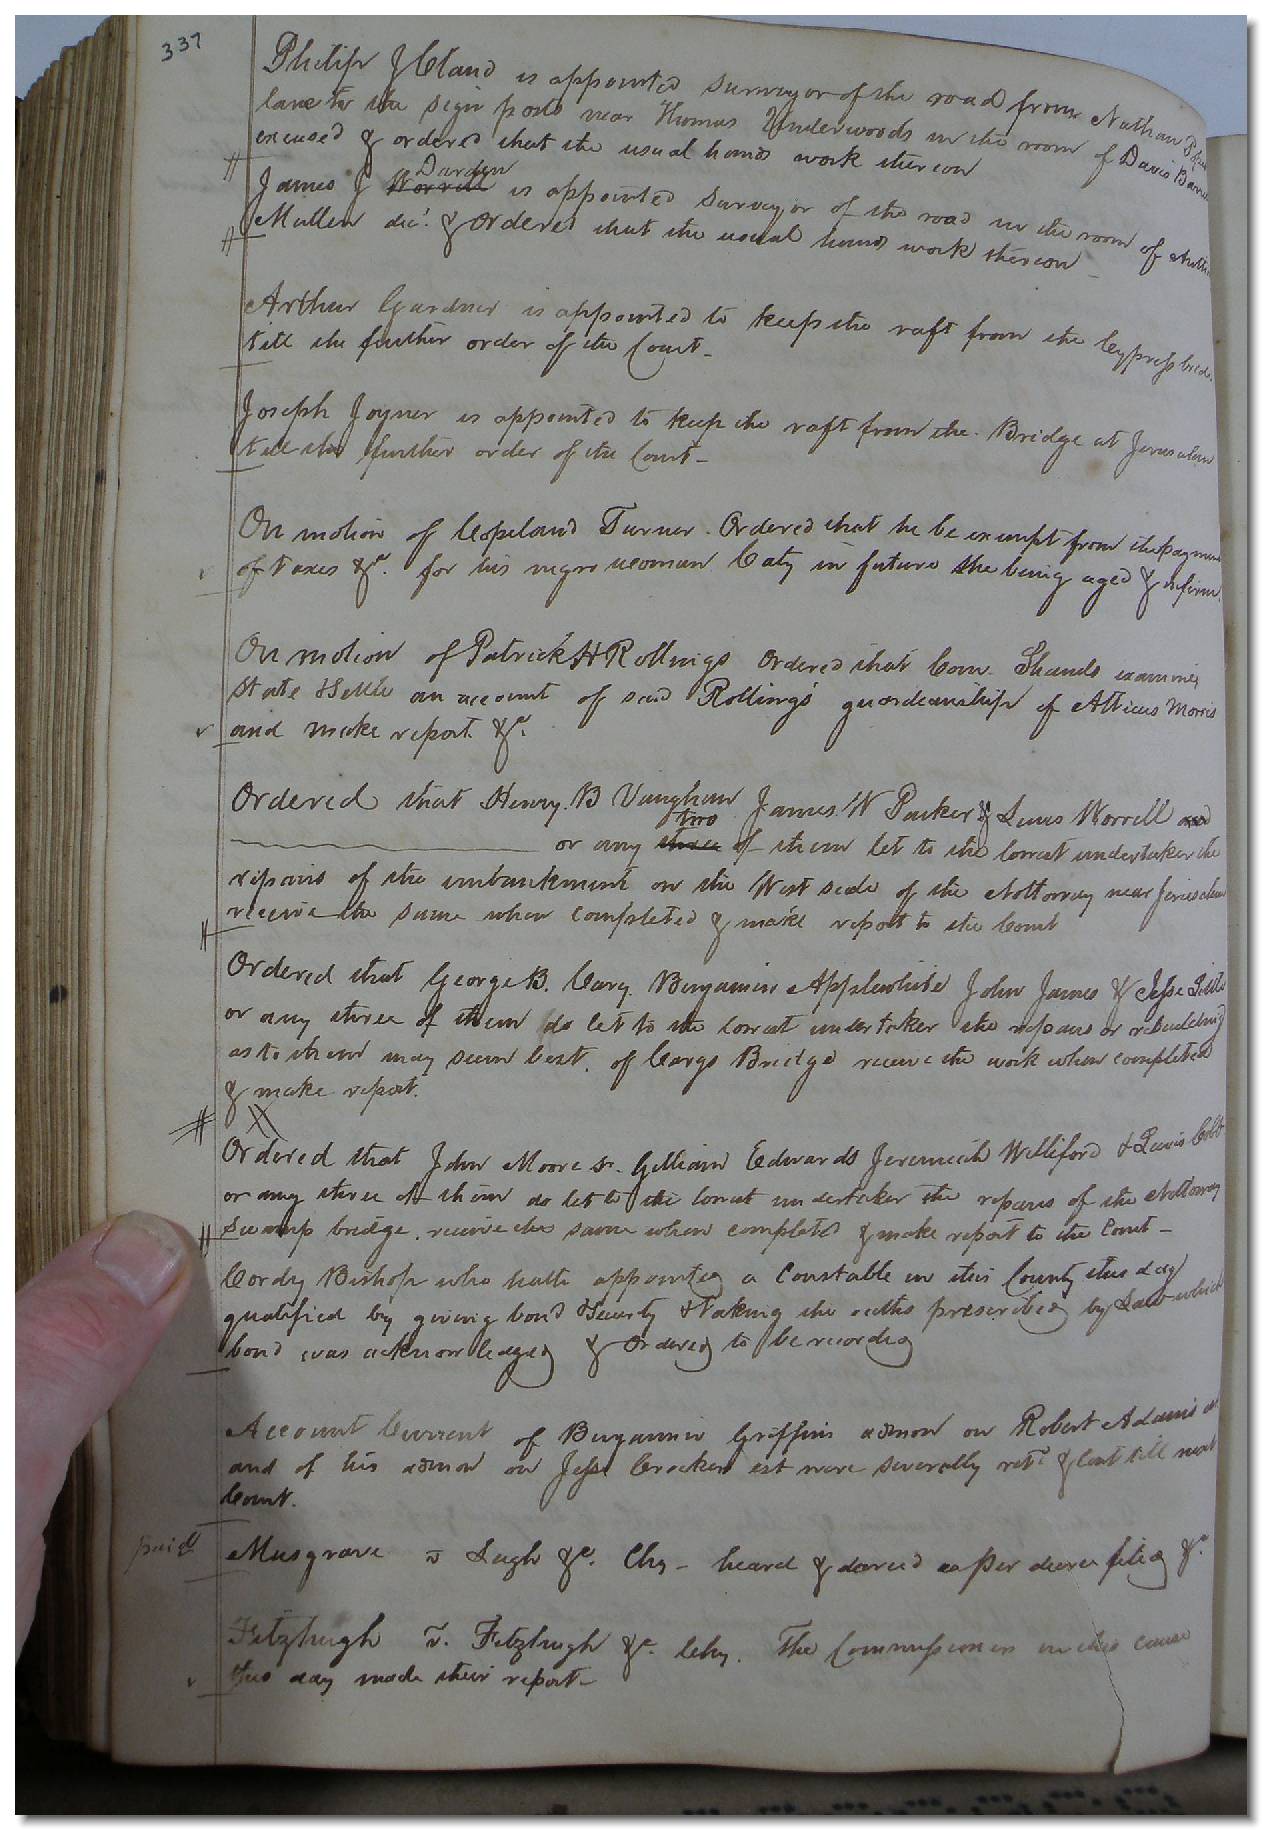 337
Philip J Cland is appointed surveyor of the road from Nathan
lane to the sign posts near Thomas Underwoods in the room of Davis
excused & ordered that the usual hands work thereon
Darden
James J Worrell is appointed surveyor of the road in the room of
Mullen dec'. & Ordered that the usual hands work thereon
Arthur Gardner is appointed to keep the raft from the Cypress
till the further order of the Court -
Joseph Joyner is appointed to keep the raft from the Bridge at Jerusalem
till the further order of the Court -
On motion of Copeland Turner. Ordered that he be exempt from the payment
of taxes &c. for his negro woman Caty in future she being aged & infirm.
On motion of Patrick H Rollings Ordered that Com. Shands examine,
state & settle an account of said Rollings guardianship of Atticus Morris
and make report &c.
Ordered that Henry B Vaughan James W Parker & Lewis Worrell and
two
or any three of them let to the lowest undertaker the
repairs of the embankment on the West side of the Nottoway near Jerusalem
receive the same when completed & make report to the Court
Ordered that George B. Cary Benjamin Applewhite John James & Jesse Little
or any three of them do let to the lowest undertaker the repairs or rebuilding
as to them may seem best, of Carys Bridge receive the work when completed
& make report.
Ordered that John Moore Sr. Gilliam Edwards Jeremiah Williford & Lewis Cobb
or any three of them do let to the lowest undertaker the repairs of the Nottoway
Swamp bridge, receive the same when completed & make report to the Court -
Cordy Bishop who hath appointed a Constable in this County this day
qualified by giving bond & Security & taking the oaths prescribed by Law which
bond was acknowledged & Ordered to be recorded
Account Current of Benjamin Griffins admon on Robert Adams
and of his admon on Jesse Crocker est were severally retd & Cont till next
Court.
paid
Musgrave v Leigh &c. Chy - heard & decreed as per decree filed &c.
Fitzhugh v. Fitzhugh &c. Chy. The Commissioners in this cause
this day made their report -